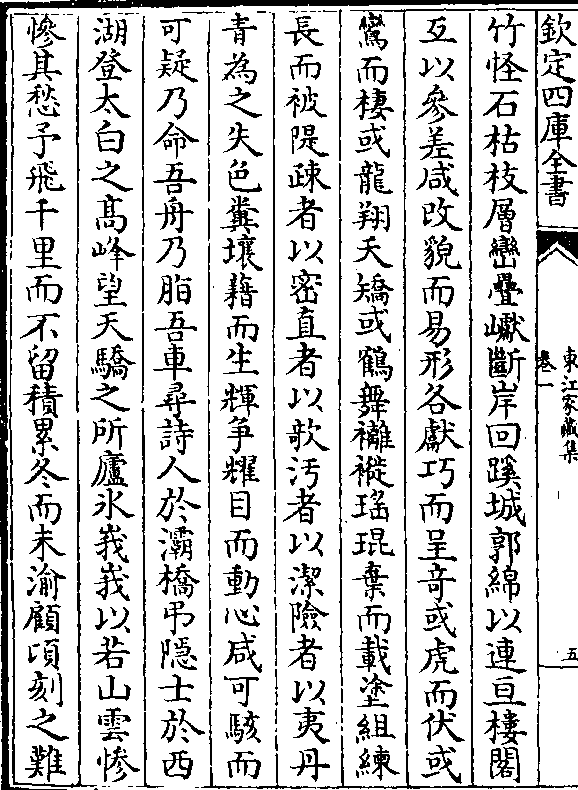 欽定四庫全書
東江家藏集
卷一
五
竹怪石枯枝層巒疊巘斷岸回蹊城郭綿以連亘樓閣
互以參差咸改貌而易形各獻巧而呈竒或虎而伏或
鸞而棲或龍翔夭矯或鶴舞䙰褷瑤琨棄而載塗組練
長而被隄疎者以密直者以欹汚者以潔險者以夷丹
青為之失色糞壤藉而生輝爭耀目而動心咸可駭而
可疑乃命吾舟乃脂吾車尋詩人於灞橋弔隠士於西
湖登太白之髙峰望天驕之所廬氷峩峩以若山雲慘
慘其愁予飛千里而不留積累冬而未渝顧頃刻之難